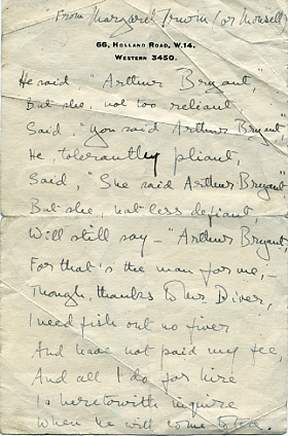 "From Margaret Irwin (or Monsell)
66, HOLLAND ROAD, W.14.
WESTERN 3450.
He said "Arthur Bryant,"
But she, not too reliant
Said, "you said Arthur Bryant,"
He, tolerantly pliant,
Said, "She said Arthur Bryant"
But she, not less defiant,
Will still say – "Arthur Bryant,
For that's the man for me,–
Though, thanks to Mr Diver,
I need fish out no fiver
And have not paid my fee,
And all I do for hire
Is herewith inquire
When he will come to tea.